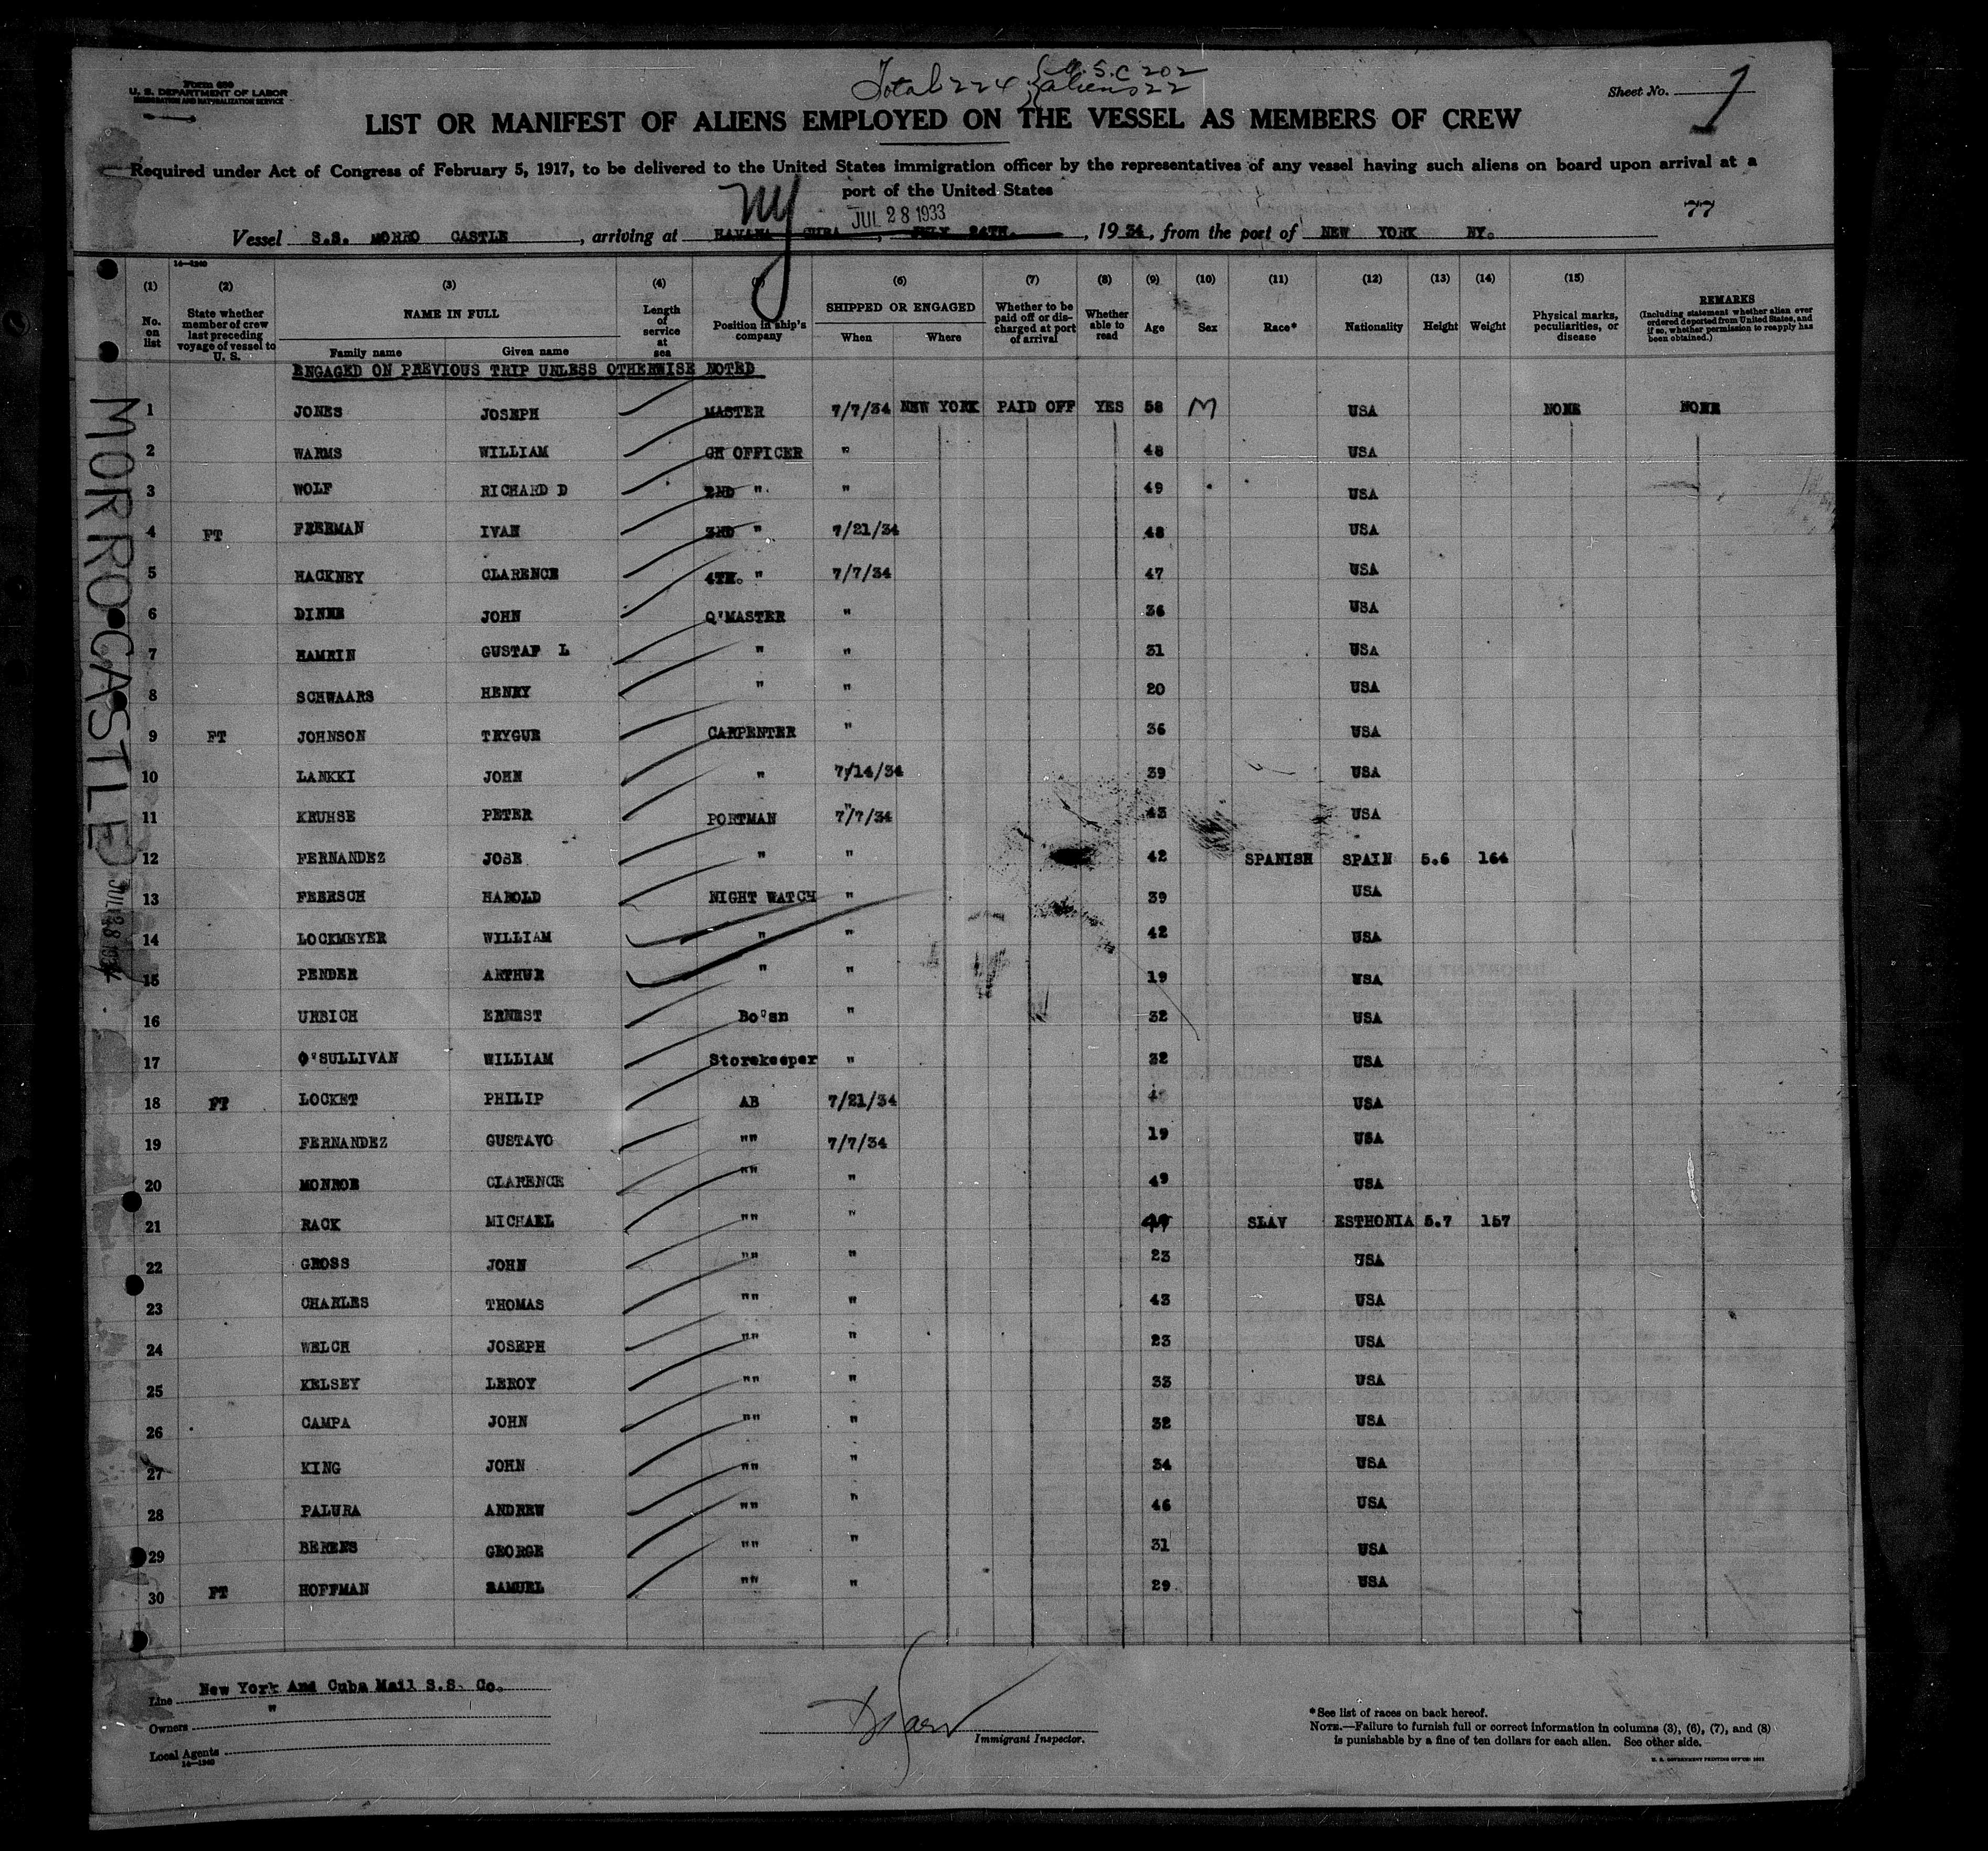 Form 680
U. S. DEPARTMENT OF LABOR
IMMIGRATION AND NATURALIZATION SERVICE
Total 224 { U.S.C 202
aliens 22
Sheet No. 1
LIST OR MANIFEST OF ALIENS EMPLOYED ON THE VESSEL AS MEMBERS OF CREW
Required under Act of Congress of February 5, 1917, to be delivered to the United States immigration officer by the representatives of any vessel having such aliens on board upon arrival at a
port of the United States
NY
JUL 28 1933
77
Vessel S.S. MORRO CASTLE, arriving at HAVANA CUBA, JULY 24TH., 1934, from the port of NEW YORK NY.
14—1240
(1) (2) (3) (4) (6) (7) (8) (9) (10) (11) (12) (13) (14) (15)
No. on list
State whether member of crew last preceding voyage of vessel to U. S.
NAME IN FULL
Family name Given name
Length of service at sea
Position in ship's company
SHIPPED OR ENGAGED
When Where
Whether to be paid off or discharged at port of arrival
Whether able to read
Age Sex Race* Nationality Height Weight
Physical marks, peculiarities, or disease
REMARKS
(Including statement whether alien ever ordered deported from United States, and if so, whether permission to reapply has been obtained.)
ENGAGED ON PREVIOUS TRIP UNLESS OTHERWISE NOTED
1 JONES JOSEPH MASTER 7/7/34 NEW YORK PAID OFF YES 58 M USA NONE NONE
2 WARMS WILLIAM CH OFFICER " 48 USA
3 WOLF RICHARD D 2ND " " 49 USA
4 FT FREEMAN IVAN 3RD " 7/21/34 48 USA
5 HACKNEY CLARENCE 4TH. " 7/7/34 47 USA
6 DINNE JOHN Q'MASTER " 36 USA
7 HAMRIN GUSTAF L " " 31 USA
8 SCHWAARS HENRY " " 20 USA
9 FT JOHNSON TRYGUE CARPENTER " 36 USA
10 LANKKI JOHN " 7/14/34 39 USA
11 KRUHSE PETER PORTMAN 7/7/34 43 USA
12 FERNANDEZ JOSE " " 42 SPANISH SPAIN 5.6 164
13 FEERSCH HAROLD NIGHT WATCH " 39 USA
14 LOCKMEYER WILLIAM " " 42 USA
15 PENDER ARTHUR " " 19 USA
16 URBICH ERNEST Bo'sn " 32 USA
17 O'SULLIVAN WILLIAM Storekeeper " 32 USA
18 FT LOCKET PHILIP AB 7/21/34 USA
19 FERNANDEZ GUSTAVO "" 7/7/34 19 USA
20 MONROE CLARENCE "" " 49 USA
21 RACK MICHAEL "" " SLAV ESTHONIA 5.7 157
22 GROSS JOHN "" " 23 USA
23 CHARLES THOMAS "" " 43 USA
24 WELCH JOSEPH "" " 23 USA
25 KELSEY LEROY "" " 33 USA
26 CAMPA JOHN "" " 32 USA
27 KING JOHN "" " 34 USA
28 PALURA ANDREW "" " 46 USA
29 BERENS GEORGE "" " 31 USA
30 FT HOFFMAN SAMUEL "" " 29 USA
MORRO CASTLE JUL 28 1934
Line New York And Cuba Mail S.S. Co.
Owners "
Local Agents
14—1240
Immigrant Inspector.
*See list of races on back hereof.
NOTE.—Failure to furnish full or correct information in columns (3), (6), (7), and (8)
is punishable by a fine of ten dollars for each alien. See other side.
U. S. GOVERNMENT PRINTING OFFICE: 1932